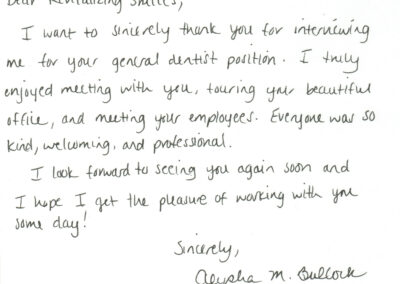 Dear Revitalizing Smiles,
I want to sincerely thank you for interviewing
me for your general dentist position. I truly
enjoyed meeting with you, touring your beautiful
office, and meeting your employees. Everyone was so
kind, welcoming, and professional.
I look forward to seeing you again soon and
I hope I get the pleasure of working with you
some day!
Sincerely,
M. Bullock